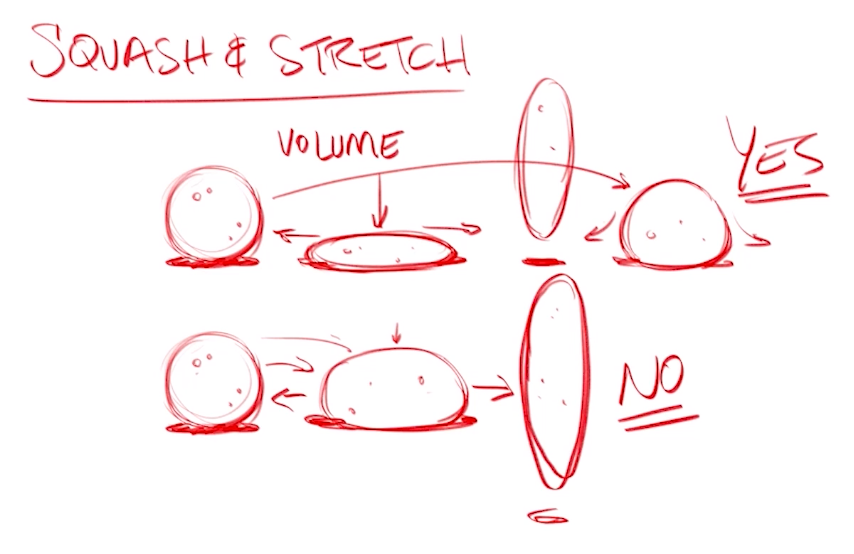 SQUASH & STRETCH
VOLUME
YES
NO